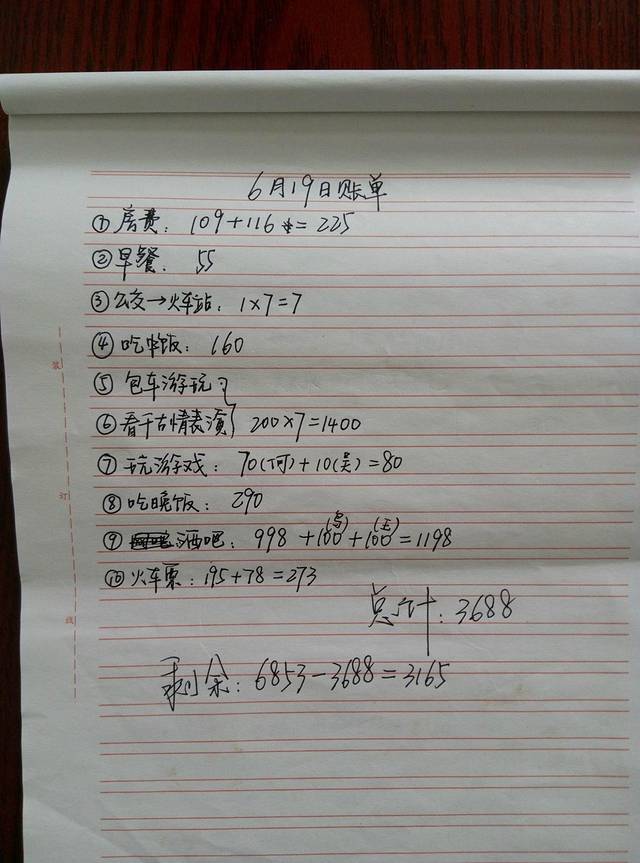 6月19日账单
①房费：109+116=225
②早餐：55
③公交→火车站：1×7=7
④吃中饭：160
⑤包车游玩
⑥看千古情表演} 200×7=1400
⑦玩游戏：70(何)+10(吴)=80
⑧吃晚饭：290
⑨酒吧：998+100(乌)+100(王)=1198
⑩火车票：195+78=273
总计：3688
剩余：6853-3688=3165
装
订
线